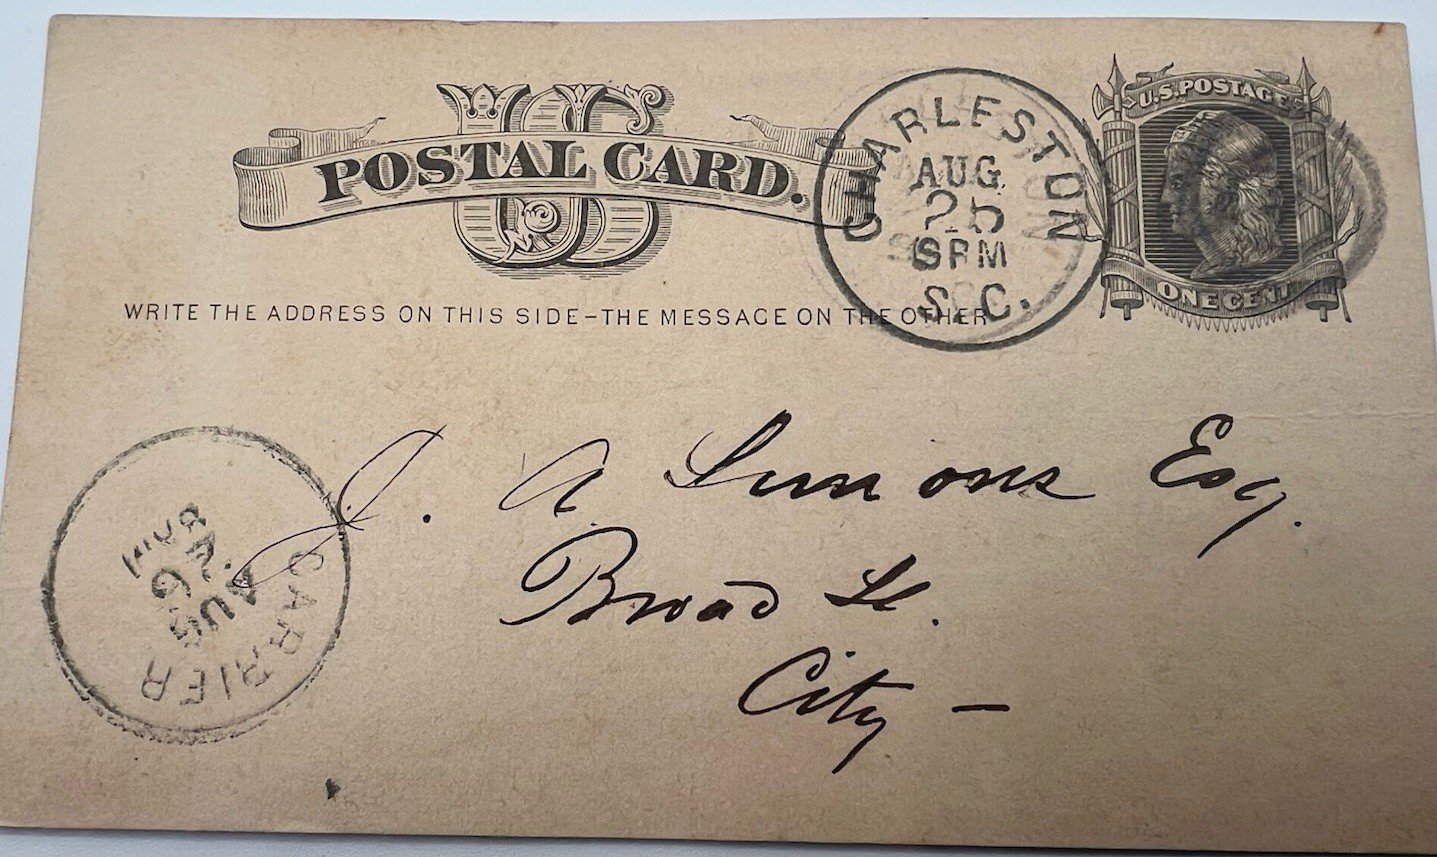 US
POSTAL CARD.
U.S. POSTAGE
ONE CENT
CHARLESTON
AUG
25
6PM
S.C.
WRITE THE ADDRESS ON THIS SIDE-THE MESSAGE ON THE OTHER
J. A. Simons Esq.
Broad St.
City -
CARRIER
AUG